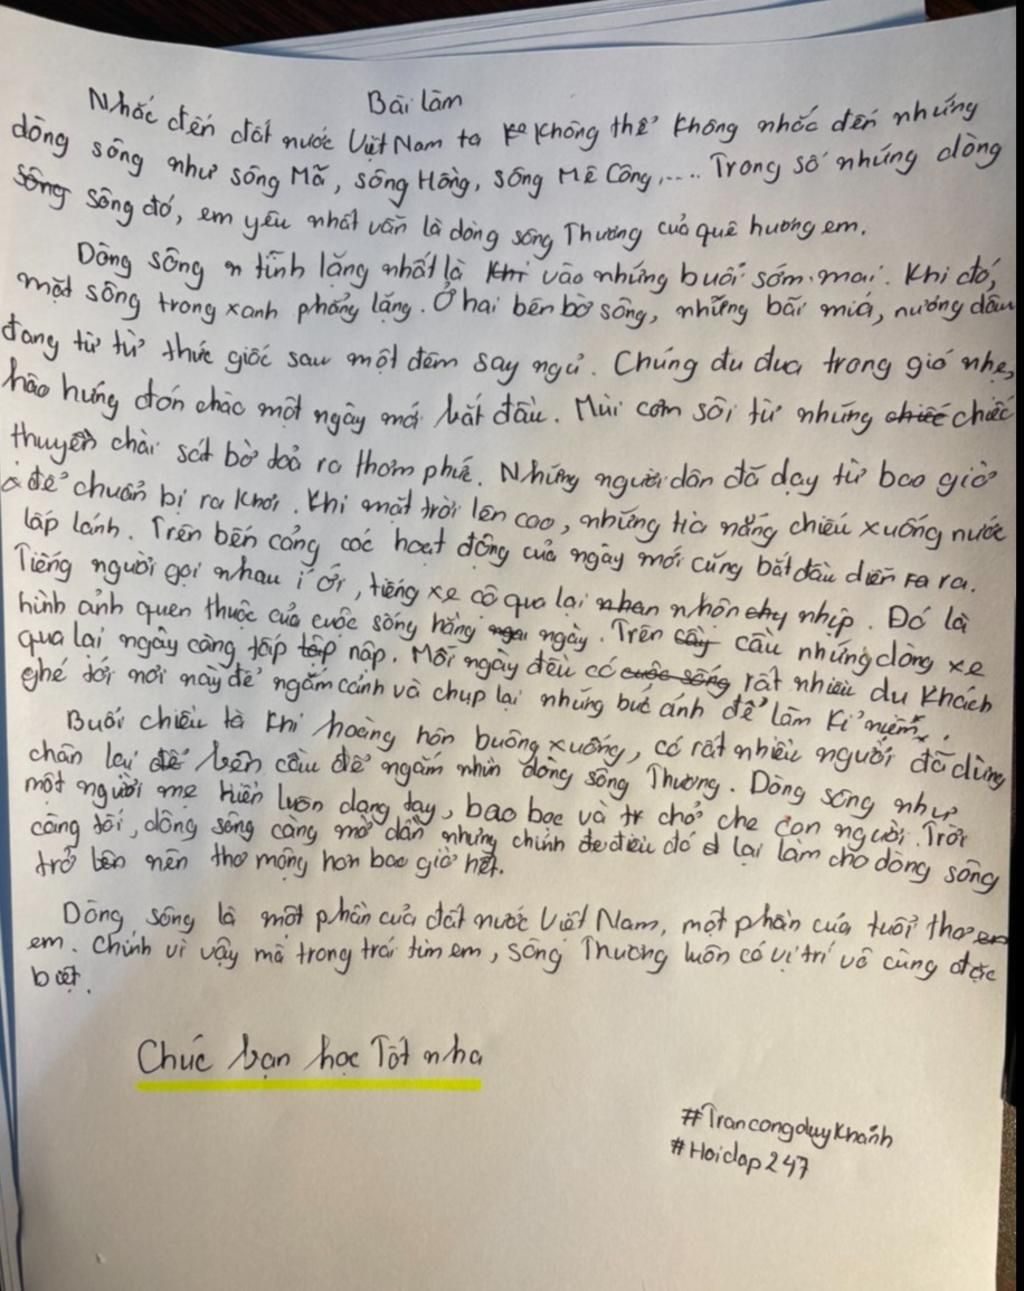 Bài làm
Nhắc đến đất nước Việt Nam ta không thể không nhắc đến những
dòng sông như sông Mã, sông Hồng, sông Mê Công,.... Trong số những dòng
sông sông đó, em yêu nhất vẫn là dòng sông Thương của quê hương em.
Dòng sông tĩnh lặng nhất là vào những buổi sớm mai. Khi đó,
mặt sông trong xanh phẳng lặng. Ở hai bên bờ sông, những bãi mía, nương dâu
đang từ từ thức giấc sau một đêm say ngủ. Chúng đu đưa trong gió nhẹ,
hào hứng đón chào một ngày mới bắt đầu. Mùi cơm sôi từ những chiếc chiếc
thuyền chài sát bờ toả ra thơm phức. Những người dân đã dạy từ bao giờ
để chuẩn bị ra khơi. Khi mặt trời lên cao, những tia nắng chiếu xuống nước
lấp lánh. Trên bến cảng các hoạt động của ngày mới cũng bắt đầu diễn ra ra.
Tiếng người gọi nhau í ới, tiếng xe cộ qua lại nhộn nhịp. Đó là
hình ảnh quen thuộc của cuộc sống hằng ngày. Trên cầu những dòng xe
qua lại ngày càng tấp nập. Mỗi ngày đều có cuộc sống rất nhiều du khách
ghé tới nơi này để ngắm cảnh và chụp lại những bức ảnh để làm kỉ niệm.
Buổi chiều tà khi hoàng hôn buông xuống, có rất nhiều người đã dừng
chân lại để bên cầu để ngắm nhìn dòng sông Thương. Dòng sông như
một người mẹ hiền luôn dang tay, bao bọc và tr chở che con người. Trời
càng tối, dòng sông càng mờ dần nhưng chính điều đó lại làm cho dòng sông
trở lên nên thơ mộng hơn bao giờ hết.
Dòng sông là một phần của đất nước Việt Nam, một phần của tuổi thơ em
em. Chính vì vậy mà trong trái tim em, sông Thương luôn có vị trí vô cùng đặc
biệt.
Chúc bạn học Tốt nha
#Trancongduykhánh
#Hoidap247